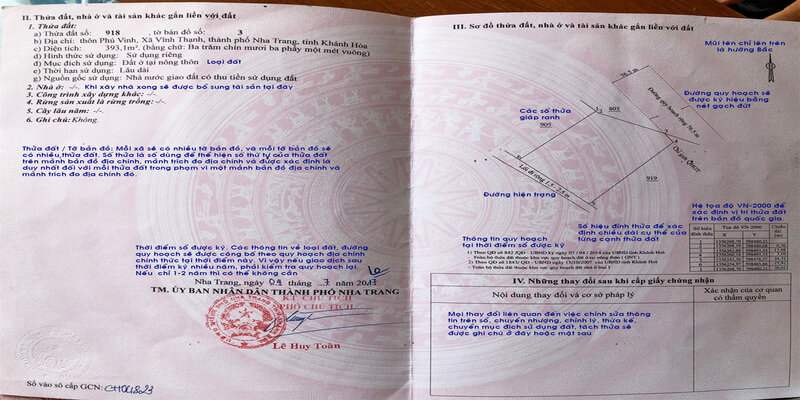 II. Thửa đất, nhà ở và tài sản khác gắn liền với đất
1. Thửa đất:
a) Thửa đất số: 918 , tờ bản đồ số: 3
b) Địa chỉ: thôn Phú Vinh, Xã Vĩnh Thạnh, thành phố Nha Trang, tỉnh Khánh Hòa
c) Diện tích: 393,1m², (bằng chữ: Ba trăm chín mươi ba phẩy một mét vuông)
d) Hình thức sử dụng: Sử dụng riêng
đ) Mục đích sử dụng: Đất ở tại nông thôn Loại đất
e) Thời hạn sử dụng: Lâu dài
g) Nguồn gốc sử dụng: Nhà nước giao đất có thu tiền sử dụng đất
2. Nhà ở: -/- Khi xây nhà xong sẽ được bổ sung tài sản tại đây
3. Công trình xây dựng khác: -/-
4. Rừng sản xuất là rừng trồng: -/-
5. Cây lâu năm: -/-
6. Ghi chú: Không
Thửa đất / Tờ bản đồ: Mỗi xã sẽ có nhiều tờ bản đồ, và mỗi tờ bản đồ sẽ
có nhiều thửa đất. Số thửa là số dùng để thể hiện số thứ tự của thửa đất
trên mảnh bản đồ địa chính, mảnh trích đo địa chính và được xác định là
duy nhất đối với mỗi thửa đất trong phạm vi một mảnh bản đồ địa chính và
mảnh trích đo địa chính đó.
Thời điểm sổ được ký. Các thông tin về loại đất, đường
quy hoạch sẽ được công bố theo quy hoạch địa chính
chính thức tại thời điểm này. Vì vậy nếu giao dịch sau
thời điểm ký nhiều năm, phải kiểm tra quy hoạch lại
Nếu chỉ 1-2 năm thì có thể không cần
Nha Trang, ngày
TM. ỦY BAN NHÂN DÂN THÀNH PHỐ NHA TRANG
KT CHỦ TỊCH
PHÓ CHỦ TỊCH
Lê Huy Toàn
Số vào sổ cấp GCN:
III. Sơ đồ thửa đất, nhà ở và tài sản khác gắn liền với đất
Mũi tên chỉ lên trên
là hướng Bắc
Các số thửa
giáp ranh
905
803
Đường quy hoạch sẽ
được ký hiệu bằng
nét gạch đứt
919
Đường hiện trạng
Hệ tọa độ VN-2000 để
xác định vị trí thửa đất
trên bản đồ quốc gia.
Số hiệu đỉnh thửa để xác
định chiều dài cụ thể của
từng cạnh thửa đất
Thông tin quy hoạch
tại thời điểm sổ được ký
Số hiệu
đỉnh thửa
Tọa độ VN-2000
X Y
IV. Những thay đổi sau khi cấp giấy chứng nhận
Nội dung thay đổi và cơ sở pháp lý
Xác nhận của cơ quan
có thẩm quyền
Mọi thay đổi liên quan đến việc chỉnh sửa thông
tin trên sổ, chuyển nhượng, chỉnh lý, thừa kế,
chuyển mục đích sử dụng đất, tách thửa sẽ
được ghi chú ở đây hoặc mặt sau